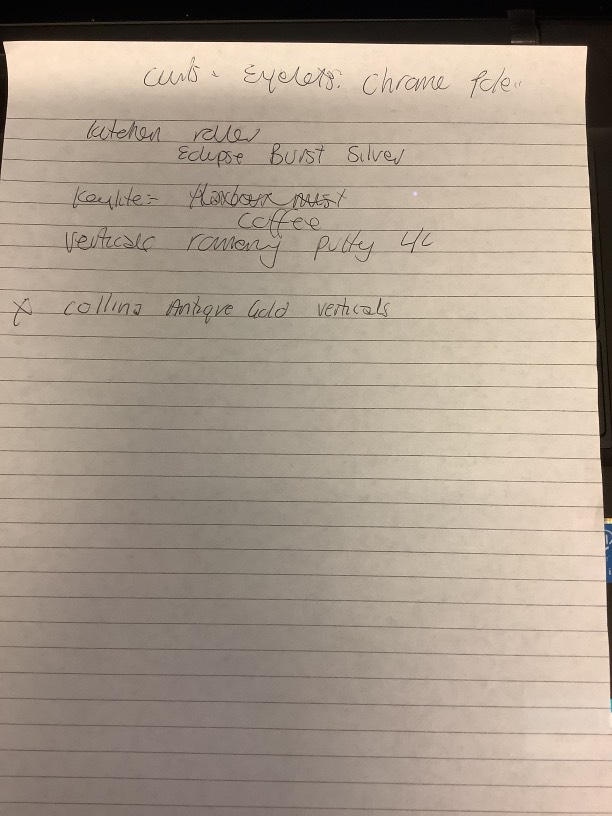 Eyelets: Chrome Pole..
kitchen roller
Eclipse Burst Silver
Keylite:- Harbour mist
coffee
verticals romany putty
X collina Antique Gold verticals